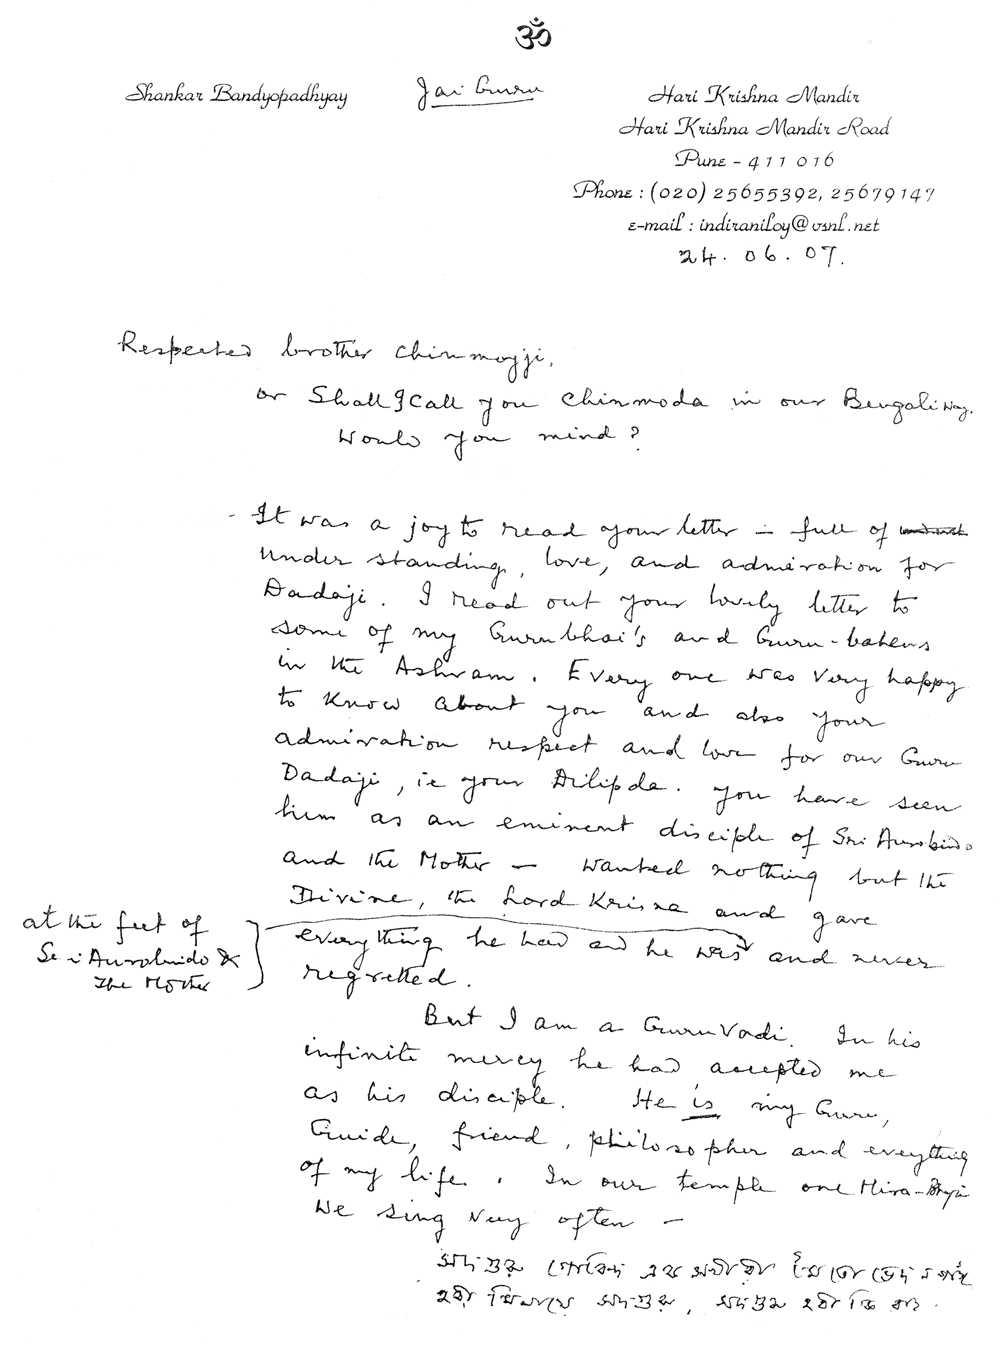 ॐ
Shankar Bandyopadhyay
Jai Guru
Hari Krishna Mandir
Hari Krishna Mandir Road
Pune - 411 016
Phone : (020) 25655392, 25679147
e-mail : indiraniloy@vsnl.net
24. 06. 07.
Respected brother Chinmoyji,
or Shall I Call you Chinmoda in our Bengali way.
Would you mind?
- It was a joy to read your letter - full of
understanding, love, and admiration for
Dadaji. I read out your lovely letter to
some of my Gurubhai's and Guru-bahens
in the Ashram. Every one was very happy
to know about you and also your
admiration respect and love for our Guru
Dadaji, ie your Dilipda. you have seen
him as an eminent disciple of Sri Aurobindo
and the Mother - wanted nothing but the
Divine, the Lord Krisna and gave
everything he had and he was and never
regretted.
at the feet of
Sri Aurobindo &
The Mother
But I am a GuruVadi. In his
infinite mercy he had accepted me
as his disciple. He is my Guru,
Guide, friend, philosopher and everything
of my life. In our temple one Mira-Bhajan
we sing very often -
সদগুরু গোবিন্দ এক
সদগুরু, সদগুরু